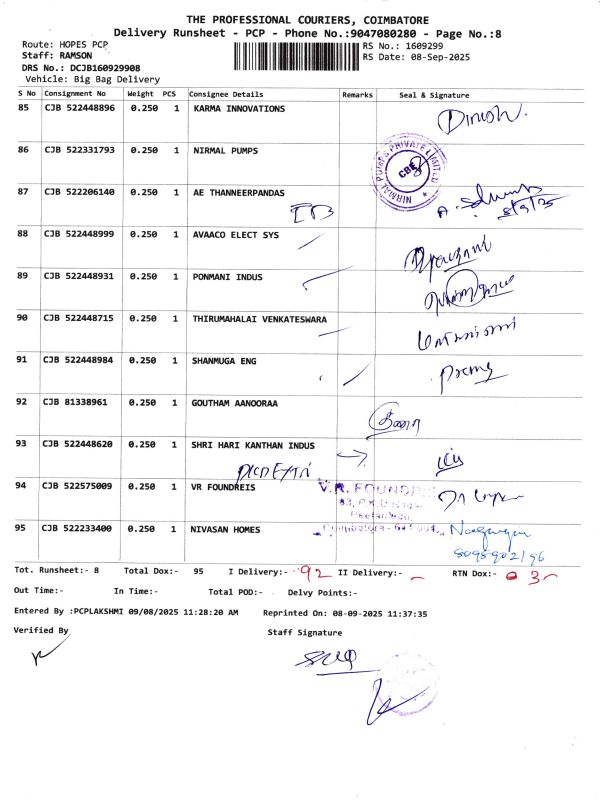 THE PROFESSIONAL COURIERS, COIMBATORE
Delivery Runsheet - PCP - Phone No.:9047080280 - Page No.:8
Route: HOPES PCP
RS No.: 1609299
Staff: RAMSON
RS Date: 08-Sep-2025
DRS No.: DCJB160929908
Vehicle: Big Bag Delivery
S No Consignment No Weight PCS Consignee Details Remarks Seal & Signature
85 CJB 522448896 0.250 1 KARMA INNOVATIONS Dinesh.
86 CJB 522331793 0.250 1 NIRMAL PUMPS
NIRMAL PUMPS PRIVATE LIMITED
CBE
87 CJB 522206140 0.250 1 AE THANNEERPANDAS
8/9/25
88 CJB 522448999 0.250 1 AVAACO ELECT SYS
89 CJB 522448931 0.250 1 PONMANI INDUS
90 CJB 522448715 0.250 1 THIRUMAHALAI VENKATESWARA
91 CJB 522448984 0.250 1 SHANMUGA ENG
92 CJB 81338961 0.250 1 GOUTHAM AANOORAA
93 CJB 522448620 0.250 1 SHRI HARI KANTHAN INDUS
94 CJB 522575009 0.250 1 VR FOUNDREIS
V.R. FOUNDRI
Peelamedu,
95 CJB 522233400 0.250 1 NIVASAN HOMES
Coimbatore - 641 004.
Tot. Runsheet:- 8 Total Dox:- 95 I Delivery:- 92 II Delivery:- RTN Dox:- 3
Out Time:- In Time:- Total POD:- Delvy Points:-
Entered By :PCPLAKSHMI 09/08/2025 11:28:20 AM Reprinted On: 08-09-2025 11:37:35
Verified By Staff Signature